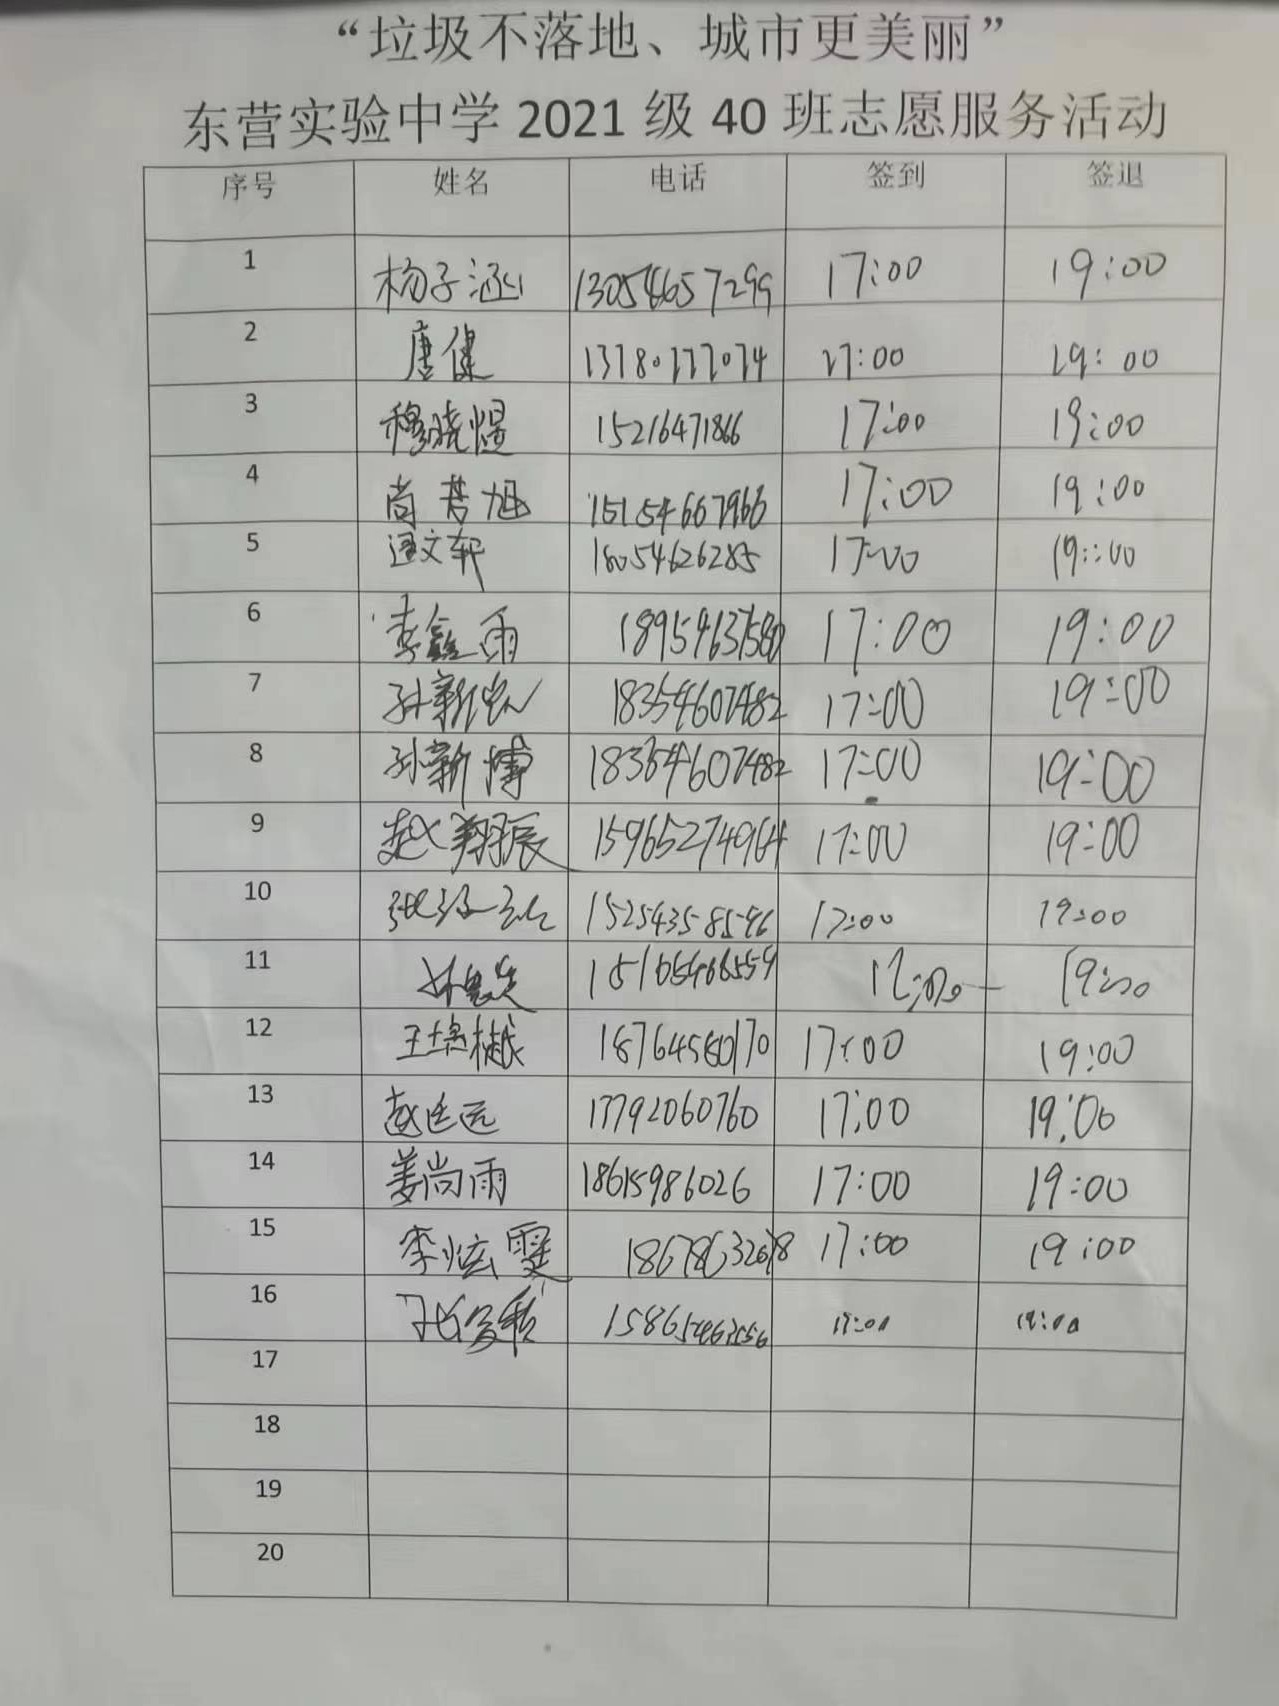 “垃圾不落地、城市更美丽”
东营实验中学 2021 级 40 班志愿服务活动
序号 姓名 电话 签到 签退
1 杨子涵 13054657299 17:00 19:00
2 唐健 17:00 19:00
3 穆晓煜 15216471866 17:00 19:00
4 尚 15154667966 17:00 19:00
5 文轩 18054626285 17:00 19:00
6 李鑫雨 18954637580 17:00 19:00
7 孙新 18354607482 17:00 19:00
8 孙新博 18354607482 17:00 19:00
9 赵翔辰 15965274964 17:00 19:00
10 张 15254358596 17:00 19:00
11 19:00
12 王 17:00 19:00
13 赵 13792060760 17:00 19:00
14 姜尚雨 18615986026 17:00 19:00
15 李炫霆 17:00 19:00
16 17:00 19:00
17
18
19
20